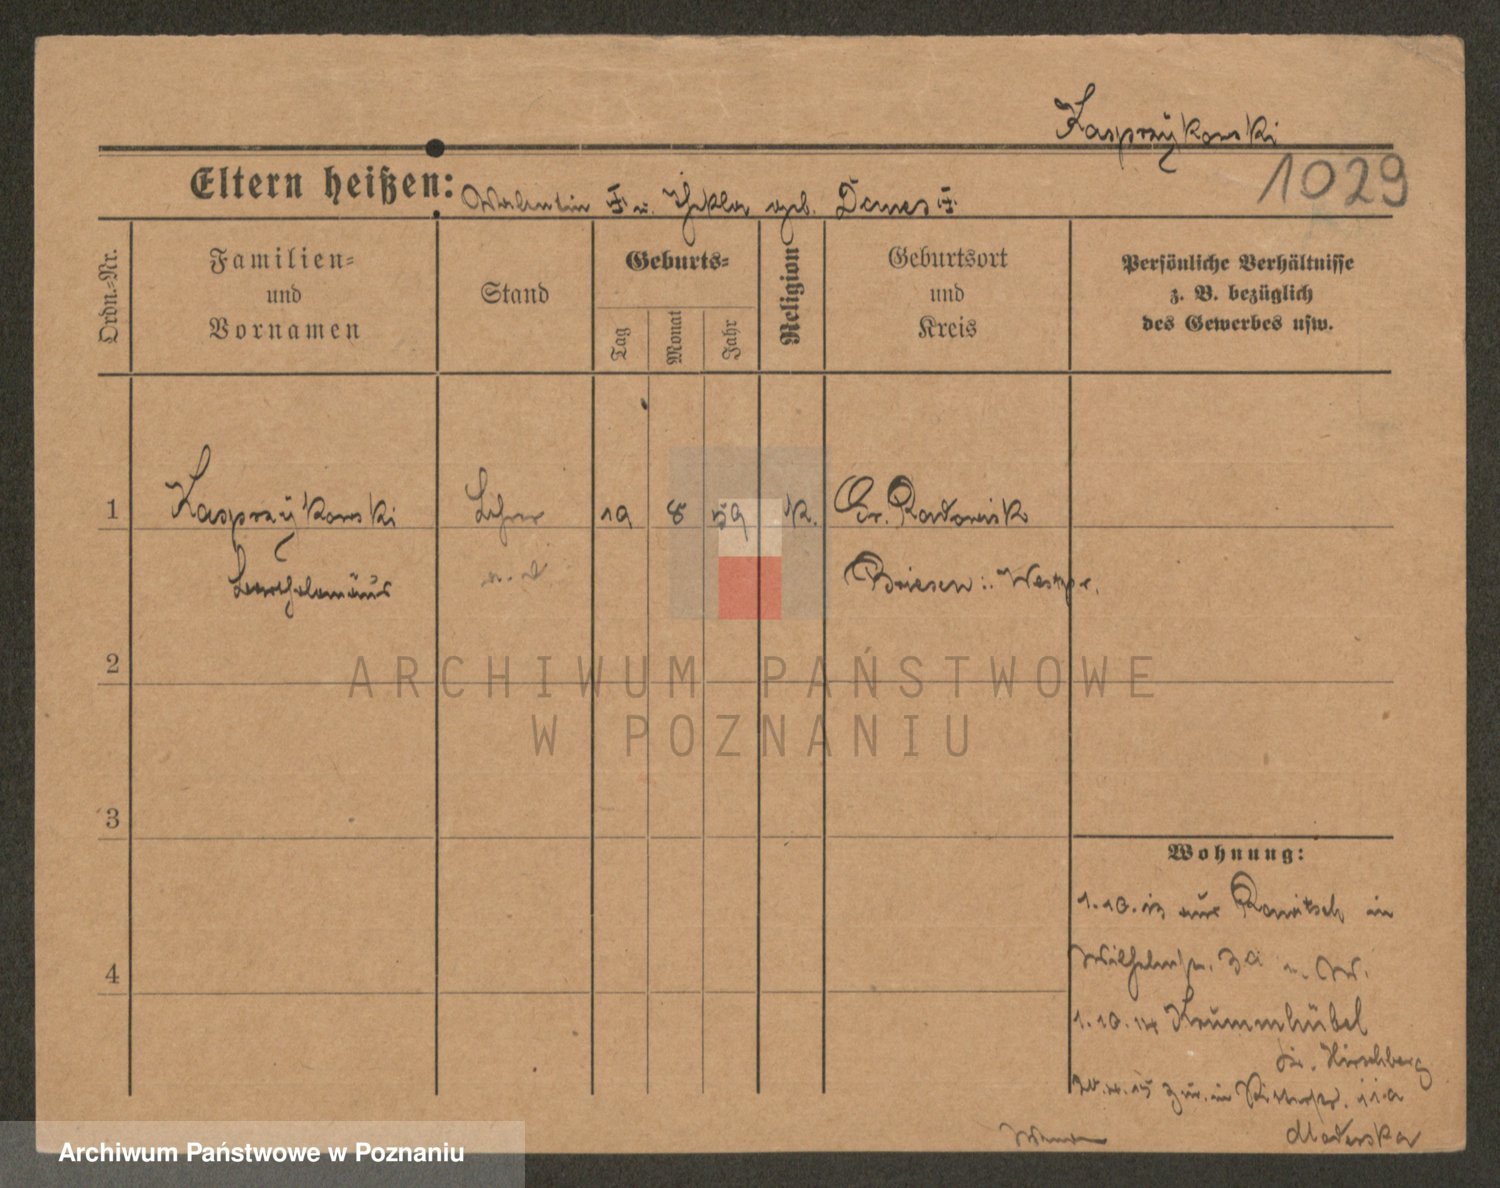 Kasprzykowski
1029
Eltern heißen: Valentin † u. Thekla geb. Danes †
Ordn.-Nr.
Familien-
und
Vornamen
Stand
Geburts-
Tag
Monat
Jahr
Religion
Geburtsort
und
Kreis
Persönliche Verhältnisse
z. B. bezüglich
des Gewerbes usw.
1 Kasprzykowski Lehrer 19 8 59 K. Gr. Radowisk
Bartholomäus a. D. Briesen i. Westpr.
2
3
4
Wohnung:
1.10.13 aus Rawitsch in
Wilhelmstr. 3a
1.10.14 Krummhübel
Kr. Hirschberg
15 zur. in Ritterstr. 11a
ARCHIWUM PAŃSTWOWE
W POZNANIU
Archiwum Państwowe w Poznaniu